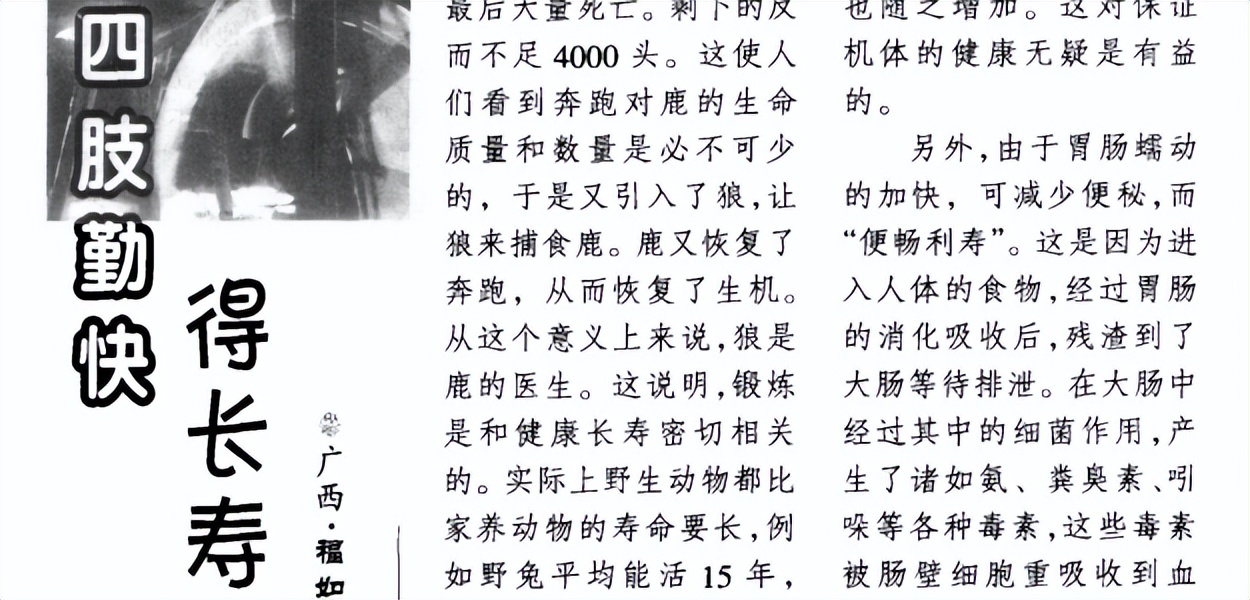 四肢勤快
得长寿
广西·福如
最后大量死亡。剩下的反
而不足 4000 头。这使人
们看到奔跑对鹿的生命
质量和数量是必不可少
的，于是又引入了狼，让
狼来捕食鹿。鹿又恢复了
奔跑，从而恢复了生机。
从这个意义上来说，狼是
鹿的医生。这说明，锻炼
是和健康长寿密切相关
的。实际上野生动物都比
家养动物的寿命要长，例
如野兔平均能活 15 年，
也随之增加。这对保证
机体的健康无疑是有益
的。
另外，由于胃肠蠕动
的加快，可减少便秘，而
“便畅利寿”。这是因为进
入人体的食物，经过胃肠
的消化吸收后，残渣到了
大肠等待排泄。在大肠中
经过其中的细菌作用，产
生了诸如氨、粪臭素、吲
哚等各种毒素，这些毒素
被肠壁细胞重吸收到血